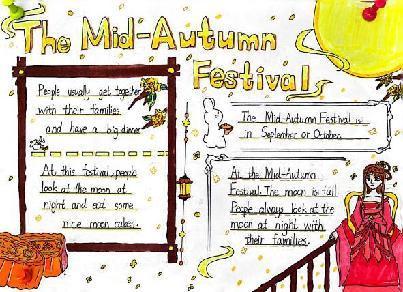 The Mid-Autumn
Festival
People usually get together
with their families
and have a big dinner.
At this festival, people
look at the moon at
night and eat some
nice moon cakes.
The Mid-Autumn Festival is
in September or October.
At the Mid-Autumn
Festival. The moon is full.
People always look at the
moon at night with
their families.